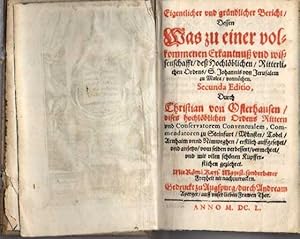 Eigentlicher vnd gründlicher Bericht/
Dessen
Was zu einer vol-
kommenen Erkantnuß vnd wis-
senschafft/ deß Hochlöblichen/ Ritterli-
chen Ordens/ S. Johannis von Jerusalem
zu Malta/ vonnöthen.
Secunda Editio,
Durch
Christian von Osterhausen/
dises hochlöblichen Ordens Rittern
vnd Conservatorem Conventualem, Com-
mendatorem zu Steinfurt/ Münster/ Tobel/
Arnhaim vnnd Nimweghen/ erstlich auffgesetzet/
vnd anjetzo/ von selben verbessert/ vermehret/
vnd mit vilen schönen Kupffer-
stichen gezieret.
Mit Röm: Kays: Mayest: sonderbarer
Freyheit nit nachzutrucken.
Gedruckt zu Augspurg/ durch Andream
Aperger/ auff vnser lieben Frawen Thor.
ANNO M. DC. L.